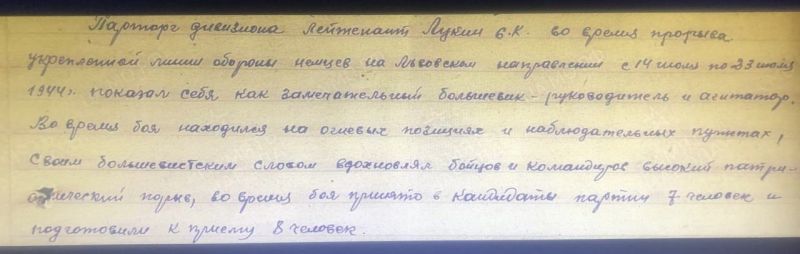 Парторг дивизиона лейтенант Лукин В.К. во время прорыва
укрепленной линии обороны немцев на Львовском направлении с 14 июля по 23 июля
1944г. показал себя как замечательный большевик-руководитель и агитатор.
Во время боя находился на огневых позициях и наблюдательных пунктах,
своим большевистским словом вдохновлял бойцов и командиров высокий патри-
отический порыв, во время боя принято в кандидаты партии 7 человек и
подготовили к приему 8 человек.